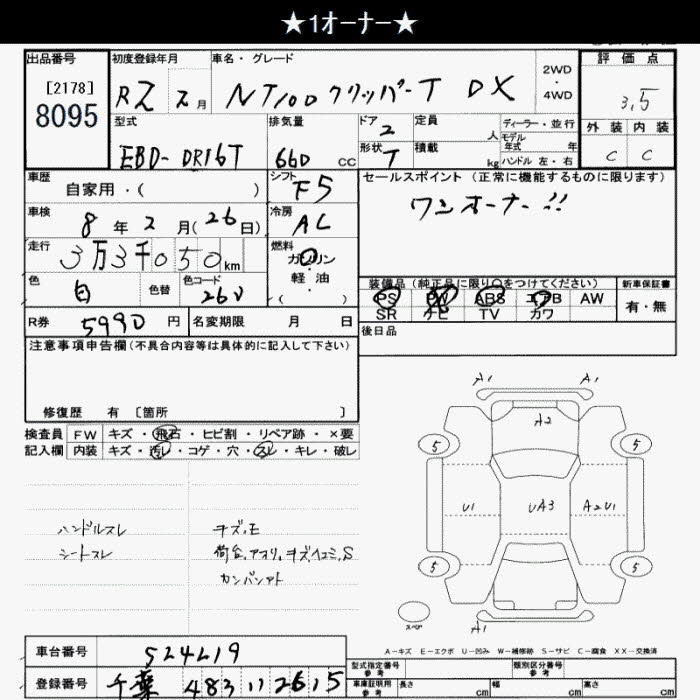 ★1オーナー★
出品番号
[2178]
8095
初度登録年月
R2 2月
車名・グレード
NT100クリッパーT DX
2WD
4WD
評価点
3.5
型式
EBD-DR16T
排気量
660 CC
ドア 2
形状 T
定員 人
積載 kg
ディーラー・並行
モデル年式 年
ハンドル 左・右
外装 内装
C C
車歴
自家用・( )
シフト F5
セールスポイント (正常に機能するものに限ります)
ワンオーナー!!
車検 8年2月(26日)
冷房 AC
走行 3万3千050km
燃料 ガソリン・軽油
( )
色 白 色替 色コード 260
装備品 (純正品に限り○をつけてください)
新車保証書
PS PW ABS エアB AW
有・無
SR ナビ TV カワ
R券 5990円 名変期限 月 日
後日品
注意事項申告欄 (不具合内容等は具体的に記入して下さい)
修復歴 有 〔箇所 〕
検査員 FW キズ・飛石・ヒビ割・リペア跡・×要
記入欄 内装 キズ・汚レ・コゲ・穴・スレ・キレ・破レ
ハンドルスレ キズ、E
シートスレ 荷台、アオリ、キズ、ヘコミ、S
A1 A1
A2
5 5
U1 UA3 A2U1
5 5
スペア
A1
A－キズ E－エクボ U－凹み W－補修跡 S－サビ C－腐食 XX－交換済
車台番号 524219
登録番号 千葉 483 い 2615
型式指定番号 参考 類別区分番号 参考
車庫証明用 参考 長さ cm 幅 cm 高さ cm